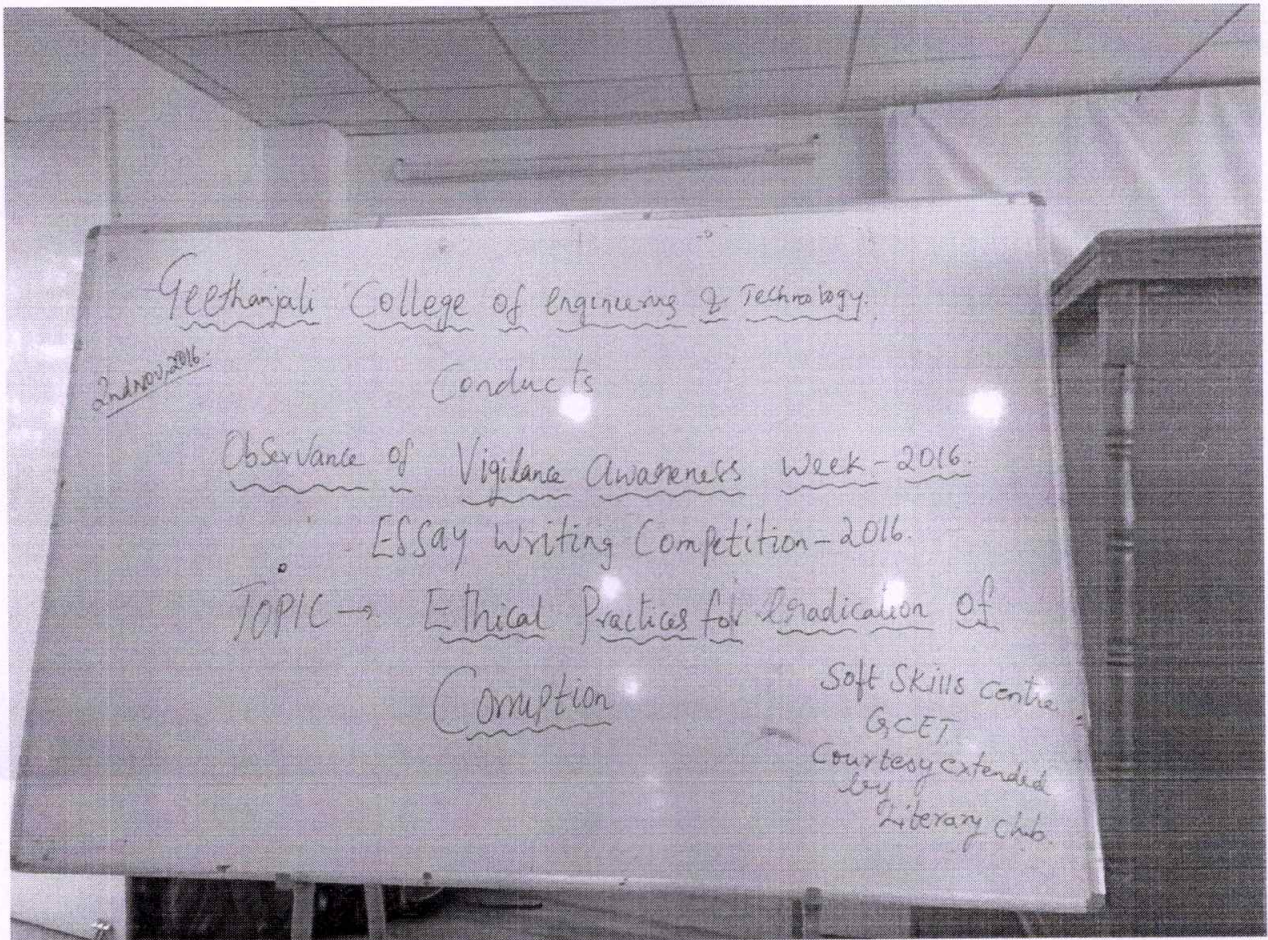 Geethanjali College of Engineering & Technology.
2nd Nov, 2016.
Conducts
Observance of Vigilance Awareness Week - 2016.
Essay Writing Competition - 2016.
TOPIC → Ethical Practices for Eradication of
Corruption
Soft Skills Centre
GCET
Courtesy extended
by
Literary club.